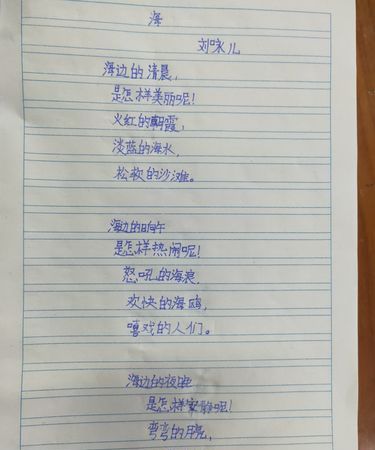 海
刘咏儿
海边的清晨，
是怎样美丽呢！
火红的朝霞，
淡蓝的海水，
松软的沙滩。
海边的晌午
是怎样热闹呢！
怒吼的海浪，
欢快的海鸥，
嘻戏的人们。
海边的夜晚
是怎样寂静呢！
弯弯的月亮，